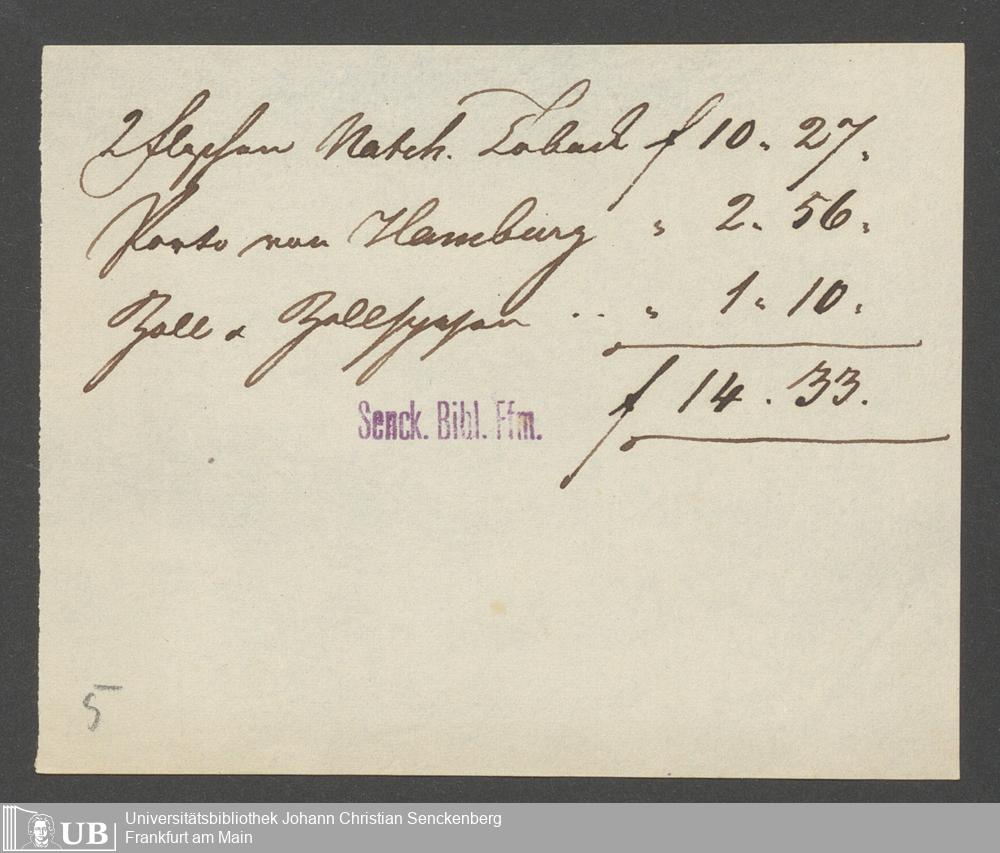 2 Flaschen Natch. Taback f 10. 27.
Porto von Hamburg " 2. 56.
Zoll & Zollspesen .. " 1. 10.
f 14. 33.
Senck. Bibl. Ffm.
5
UB
Universitätsbibliothek Johann Christian Senckenberg
Frankfurt am Main